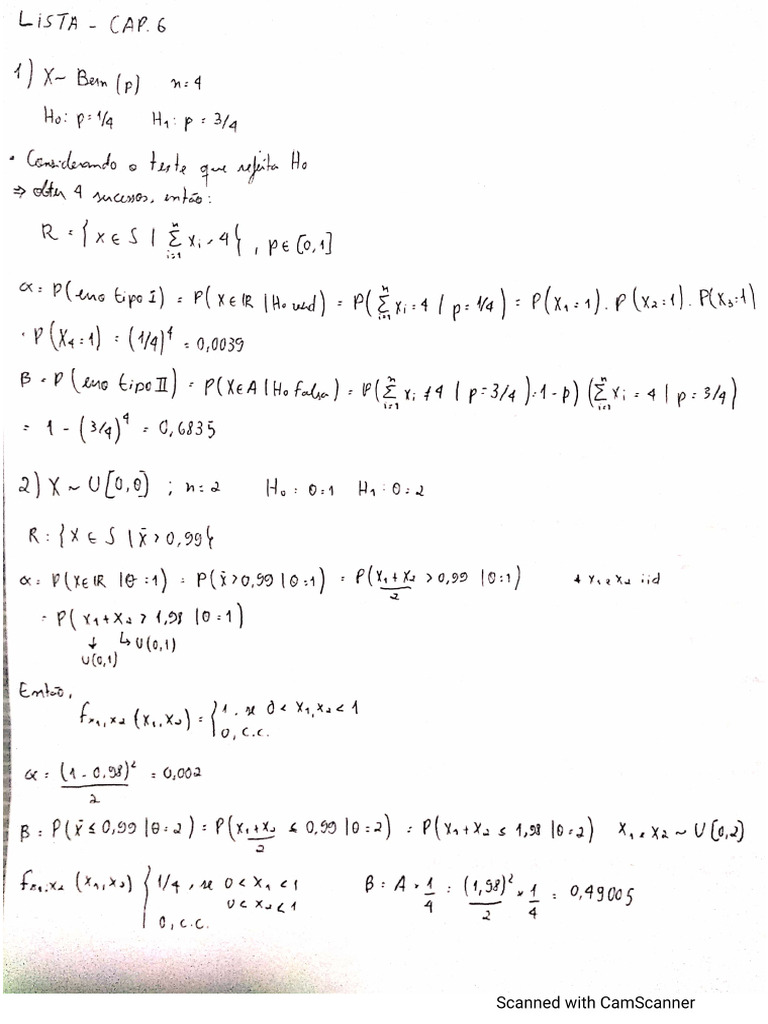 LISTA - CAP. 6
1) X ~ Bern (p) n = 4
H0: p = 1/4 H1: p = 3/4
• Considerando o teste que rejeita H0
⇒ obter 4 sucessos, então:
R = { x ∈ S | Σ_{i=1}^{n} xi = 4 }, p ∈ [0,1]
α = P(erro tipo I) = P(X ∈ R | H0 verd) = P(Σ_{i=1}^{n} xi = 4 | p = 1/4) = P(X1 = 1) . P(X2 = 1) . P(X3 = 1)
. P(X4 = 1) = (1/4)^4 = 0,0039
β = P(erro tipo II) = P(X ∈ A | H0 falsa) = P(Σ_{i=1}^{n} xi ≠ 4 | p = 3/4) = 1 - p) (Σ_{i=1}^{n} xi = 4 | p = 3/4)
= 1 - (3/4)^4 = 0,6835
2) X ~ U[0,θ] ; n = 2 H0: θ = 1 H1: θ = 2
R: { X ∈ S | x̄ > 0,99 }
α = P(X ∈ R | θ = 1) = P(x̄ > 0,99 | θ = 1) = P((x1 + x2)/2 > 0,99 | θ = 1) * x1 e x2 iid
= P(x1 + x2 > 1,98 | θ = 1)
↓ ↳ U(0,1)
U(0,1)
Então,
f_{x1,x2} (x1, x2) = { 1, se 0 < x1, x2 < 1
0, c.c.
α = (1 - 0.98)^2 / 2 = 0,002
β = P(x̄ ≤ 0,99 | θ = 2) = P((x1 + x2)/2 ≤ 0,99 | θ = 2) = P(x1 + x2 ≤ 1,98 | θ = 2) x1 e x2 ~ U[0,2]
f_{x1,x2} (x1, x2) { 1/4, se 0 < x1 < 1 β = A × 1/4 = (1,98)^2/2 × 1/4 = 0,49005
0 < x2 < 1
0, c.c.
Scanned with CamScanner